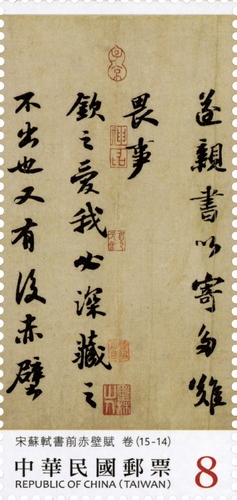 遂親書以寄多難
畏事
欽之愛我必深藏之
不出也又有後赤壁
宋蘇軾書前赤壁賦 卷(15-14)
中華民國郵票
REPUBLIC OF CHINA (TAIWAN)
8